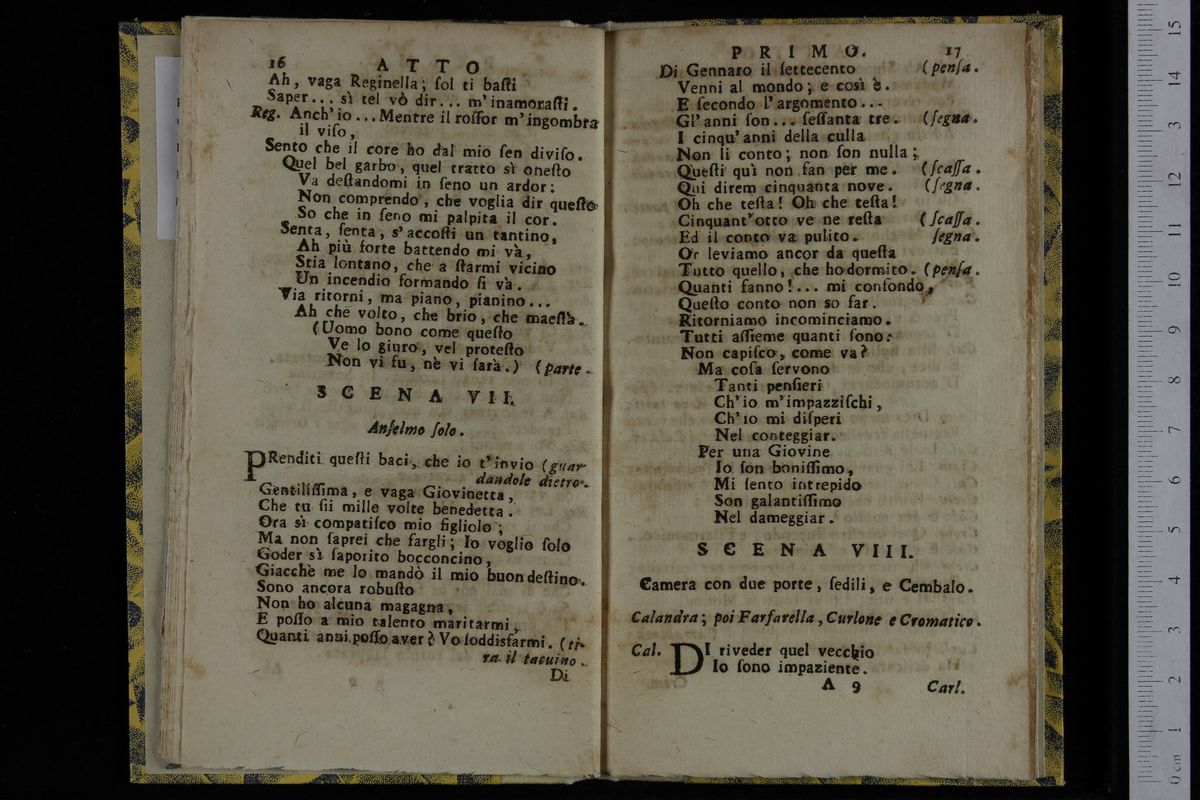 16 A T T O
Ah, vaga Reginella; ſol ti baſti
Saper... sì tel vò dir... m'inamoraſti.
Reg. Anch'io... Mentre il roſſor m'ingombra
il viſo,
Sento che il core ho dal mio ſen diviſo.
Quel bel garbo, quel tratto sì oneſto
Va deſtandomi in ſeno un ardor:
Non comprendo, che voglia dir queſto
So che in ſeno mi palpita il cor.
Senta, ſenta, s'accoſti un tantino,
Ah più forte battendo mi và,
Stia lontano, che a ſtarmi vicino
Un incendio formando ſi và.
Via ritorni, ma piano, pianino...
Ah che volto, che brio, che maeſtà.
(Uomo bono come queſto
Ve lo giuro, vel proteſto
Non vi fu, nè vi ſarà.) (parte.
S C E N A VII.
Anſelmo ſolo.
PRenditi queſti baci, che io t'invio (guar-
dandole dietro.
Gentiliſſima, e vaga Giovinetta,
Che tu ſii mille volte benedetta.
Ora sì compatiſco mio figliolo;
Ma non ſaprei che fargli; Io voglio ſolo
Goder sì ſaporito bocconcino,
Giacchè me lo mandò il mio buon deſtino.
Sono ancora robuſto
Non ho alcuna magagna,
E poſſo a mio talento maritarmi,
Quanti anni poſſo aver? Vo ſoddisfarmi. (ti-
ra il tacuino.
Di
P R I M O. 17
Di Gennaro il ſettecento (penſa.
Venni al mondo; e così è.
E ſecondo l'argomento...
Gl'anni ſon... ſeſſanta tre. (ſegna.
I cinqu'anni della culla
Non li conto; non ſon nulla;
Queſti quì non fan per me. (ſcaſſa.
Qui direm cinquanta nove. (ſegna.
Oh che teſta! Oh che teſta!
Cinquant'otto ve ne reſta (ſcaſſa.
Ed il conto va pulito. ſegna.
Or leviamo ancor da queſta
Tutto quello, che ho dormito. (penſa.
Quanti fanno!... mi confondo,
Queſto conto non so far.
Ritorniamo incominciamo.
Tutti aſſieme quanti ſono:
Non capiſco, come va?
Ma coſa ſervono
Tanti penſieri
Ch'io m'impazziſchi,
Ch'io mi diſperi
Nel conteggiar.
Per una Giovine
Io ſon boniſſimo,
Mi ſento intrepido
Son galantiſſimo
Nel dameggiar.
S C E N A VIII.
Camera con due porte, ſedili, e Cembalo.
Calandra; poi Farfarella, Curlone e Cromatico.
Cal. DI riveder quel vecchio
Io ſono impaziente.
A 9 Carl.
15
14
13
12
11
10
9
8
7
6
5
4
3
2
1
0 cm